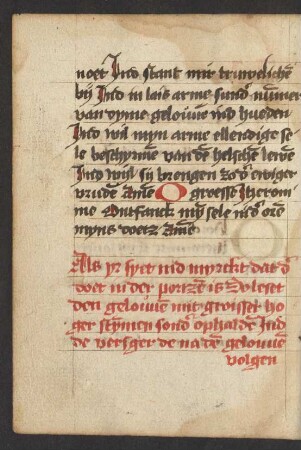 noet Ind stant mir truwelichē
bij Ind in lais arme sund' nūmer
van dyme gelouuē nid hueden
Ind wil myn arme ellendige se
le beschyrmē van dē helschē lewē
Ind wijl sy brengen zo d' ewiger
vruden Amē O groesse Iherom
me Ontfanck myn sele in d' orē
myns doetz Amē
Als yr syet nid myrckt dat d'
doet in der portzē is So leset
den gelouuē mit groisser ho
ger stymen sond' ophaldē Ind
de vetsger de na dē gelouuē
volgen